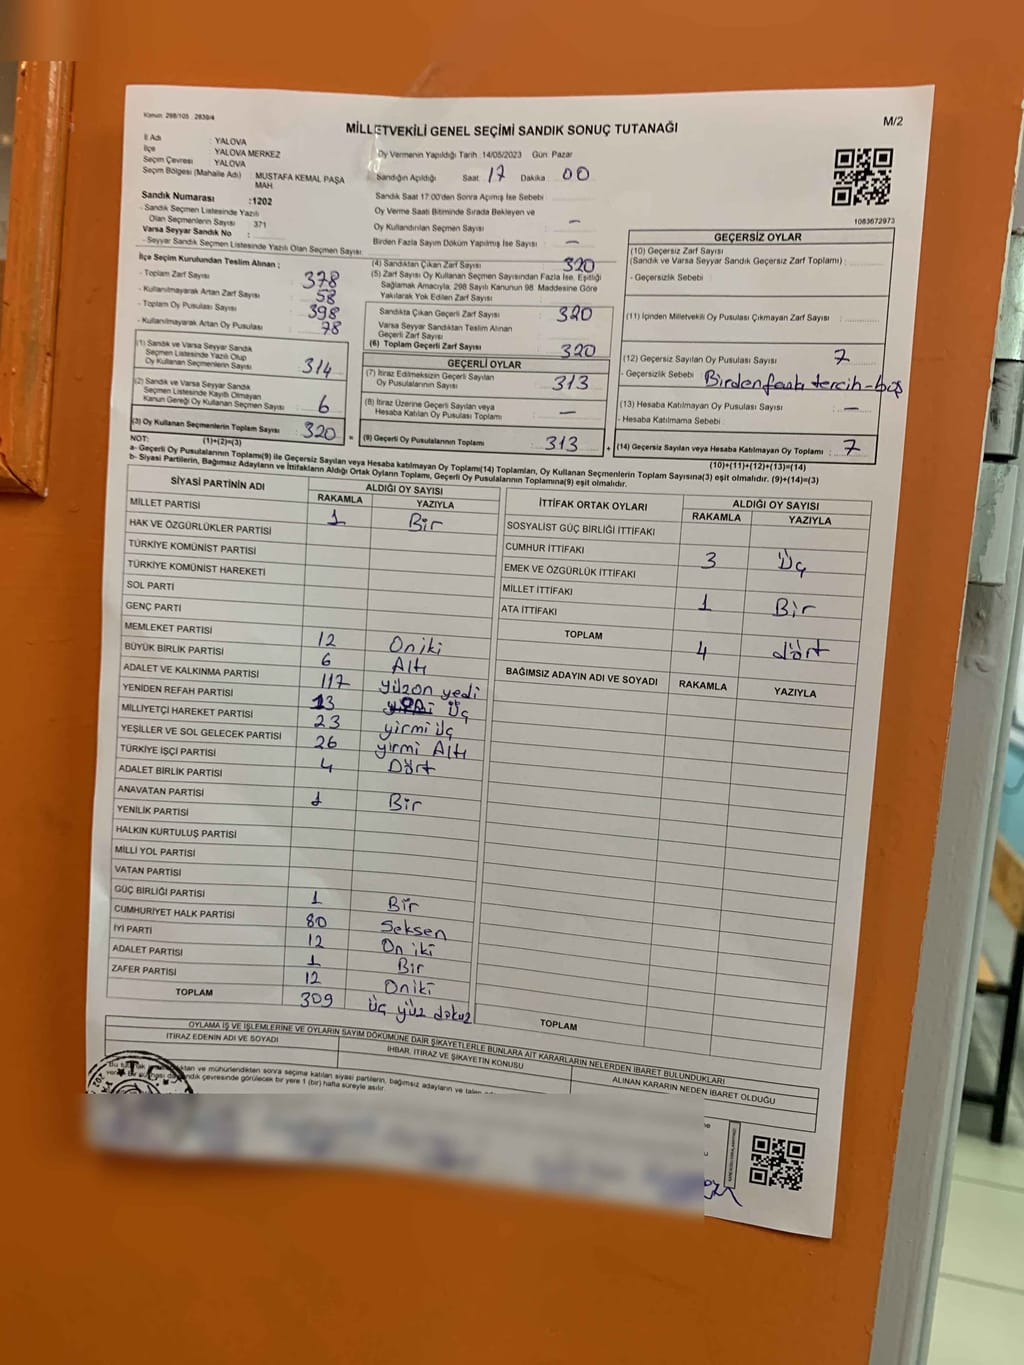 Kanun: 298/105 , 2839/4
MİLLETVEKİLİ GENEL SEÇİMİ SANDIK SONUÇ TUTANAĞI
M/2
İl Adı : YALOVA
İlçe : YALOVA MERKEZ
Seçim Çevresi : YALOVA
Seçim Bölgesi (Mahalle Adı) : MUSTAFA KEMAL PAŞA MAH.
Sandık Numarası :1202
- Sandık Seçmen Listesinde Yazılı
Olan Seçmenlerin Sayısı : 371
Varsa Seyyar Sandık No :
- Seyyar Sandık Seçmen Listesinde Yazılı Olan Seçmen Sayısı :
Oy Vermenin Yapıldığı Tarih :14/05/2023 Gün: Pazar
Sandığın Açıldığı Saat 17 Dakika 00
Sandık Saat 17:00'den Sonra Açılmış İse Sebebi :
Oy Verme Saati Bitiminde Sırada Bekleyen ve
Oy Kullandırılan Seçmen Sayısı : —
Birden Fazla Sayım Döküm Yapılmış İse Sayısı : —
1083672973
İlçe Seçim Kurulundan Teslim Alınan ;
- Toplam Zarf Sayısı : 378
- Kullanılmayarak Artan Zarf Sayısı : 58
- Toplam Oy Pusulası Sayısı : 398
- Kullanılmayarak Artan Oy Pusulası : 78
(1) Sandık ve Varsa Seyyar Sandık
Seçmen Listesinde Yazılı Olup
Oy Kullanan Seçmenlerin Sayısı : 314
(2) Sandık ve Varsa Seyyar Sandık
Seçmen Listesinde Kayıtlı Olmayan
Kanun Gereği Oy Kullanan Seçmen Sayısı : 6
(3) Oy Kullanan Seçmenlerin Toplam Sayısı : 320
(1)+(2)=(3)
(4) Sandıktan Çıkan Zarf Sayısı : 320
(5) Zarf Sayısı Oy Kullanan Seçmen Sayısından Fazla İse, Eşitliği
Sağlamak Amacıyla, 298 Sayılı Kanunun 98. Maddesine Göre
Yakılarak Yok Edilen Zarf Sayısı :
Sandıkta Çıkan Geçerli Zarf Sayısı : 320
Varsa Seyyar Sandıktan Teslim Alınan
Geçerli Zarf Sayısı :
(6) Toplam Geçerli Zarf Sayısı : 320
GEÇERLİ OYLAR
(7) İtiraz Edilmeksizin Geçerli Sayılan
Oy Pusulalarının Sayısı : 313
(8) İtiraz Üzerine Geçerli Sayılan veya
Hesaba Katılan Oy Pusulası Toplamı : —
= (9) Geçerli Oy Pusulalarının Toplamı : 313
GEÇERSİZ OYLAR
(10) Geçersiz Zarf Sayısı
(Sandık ve Varsa Seyyar Sandık Geçersiz Zarf Toplamı) :
- Geçersizlik Sebebi :
(11) İçinden Milletvekili Oy Pusulası Çıkmayan Zarf Sayısı :
(12) Geçersiz Sayılan Oy Pusulası Sayısı : 7
- Geçersizlik Sebebi : Birden fazla tercih-boş
(13) Hesaba Katılmayan Oy Pusulası Sayısı : —
- Hesaba Katılmama Sebebi :
+ (14) Geçersiz Sayılan veya Hesaba Katılmayan Oy Toplamı : 7
(10)+(11)+(12)+(13)=(14)
NOT:
a- Geçerli Oy Pusulalarının Toplamı(9) ile Geçersiz Sayılan veya Hesaba katılmayan Oy Toplamı(14) Toplamları, Oy Kullanan Seçmenlerin Toplam Sayısına(3) eşit olmalıdır. (9)+(14)=(3)
b- Siyasi Partilerin, Bağımsız Adayların ve İttifakların Aldığı Ortak Oyların Toplamı, Geçerli Oy Pusulalarının Toplamına(9) eşit olmalıdır.
SİYASİ PARTİNİN ADI ALDIĞI OY SAYISI
RAKAMLA YAZIYLA
MİLLET PARTİSİ 1 Bir
HAK VE ÖZGÜRLÜKLER PARTİSİ
TÜRKİYE KOMÜNİST PARTİSİ
TÜRKİYE KOMÜNİST HAREKETİ
SOL PARTİ
GENÇ PARTİ
MEMLEKET PARTİSİ 12 Oniki
BÜYÜK BİRLİK PARTİSİ 6 Altı
ADALET VE KALKINMA PARTİSİ 117 yüzon yedi
YENİDEN REFAH PARTİSİ 13 Üç
MİLLİYETÇİ HAREKET PARTİSİ 23 yirmi üç
YEŞİLLER VE SOL GELECEK PARTİSİ 26 yirmi Altı
TÜRKİYE İŞÇİ PARTİSİ 4 Dört
ADALET BİRLİK PARTİSİ
ANAVATAN PARTİSİ 1 Bir
YENİLİK PARTİSİ
HALKIN KURTULUŞ PARTİSİ
MİLLİ YOL PARTİSİ
VATAN PARTİSİ
GÜÇ BİRLİĞİ PARTİSİ 1 Bir
CUMHURİYET HALK PARTİSİ 80 Seksen
İYİ PARTİ 12 On iki
ADALET PARTİSİ 1 Bir
ZAFER PARTİSİ 12 Oniki
TOPLAM 309 Üç yüz dokuz
İTTİFAK ORTAK OYLARI ALDIĞI OY SAYISI
RAKAMLA YAZIYLA
SOSYALİST GÜÇ BİRLİĞİ İTTİFAKI
CUMHUR İTTİFAKI 3 Üç
EMEK VE ÖZGÜRLÜK İTTİFAKI
MİLLET İTTİFAKI 1 Bir
ATA İTTİFAKI
TOPLAM 4 dört
BAĞIMSIZ ADAYIN ADI VE SOYADI RAKAMLA YAZIYLA
TOPLAM
OYLAMA İŞ VE İŞLEMLERİNE VE OYLARIN SAYIM DÖKÜMÜNE DAİR ŞİKAYETLERLE BUNLARA AİT KARARLARIN NELERDEN İBARET BULUNDUKLARI
İTİRAZ EDENİN ADI VE SOYADI
İHBAR, İTİRAZ VE ŞİKAYETİN KONUSU
ALINAN KARARIN NEDEN İBARET OLDUĞU
ve mühürlendikten sonra seçime katılan siyasi partilerin, bağımsız adayların ve
sandık çevresinde görülecek bir yere 1 (bir) hafta süreyle asılır.